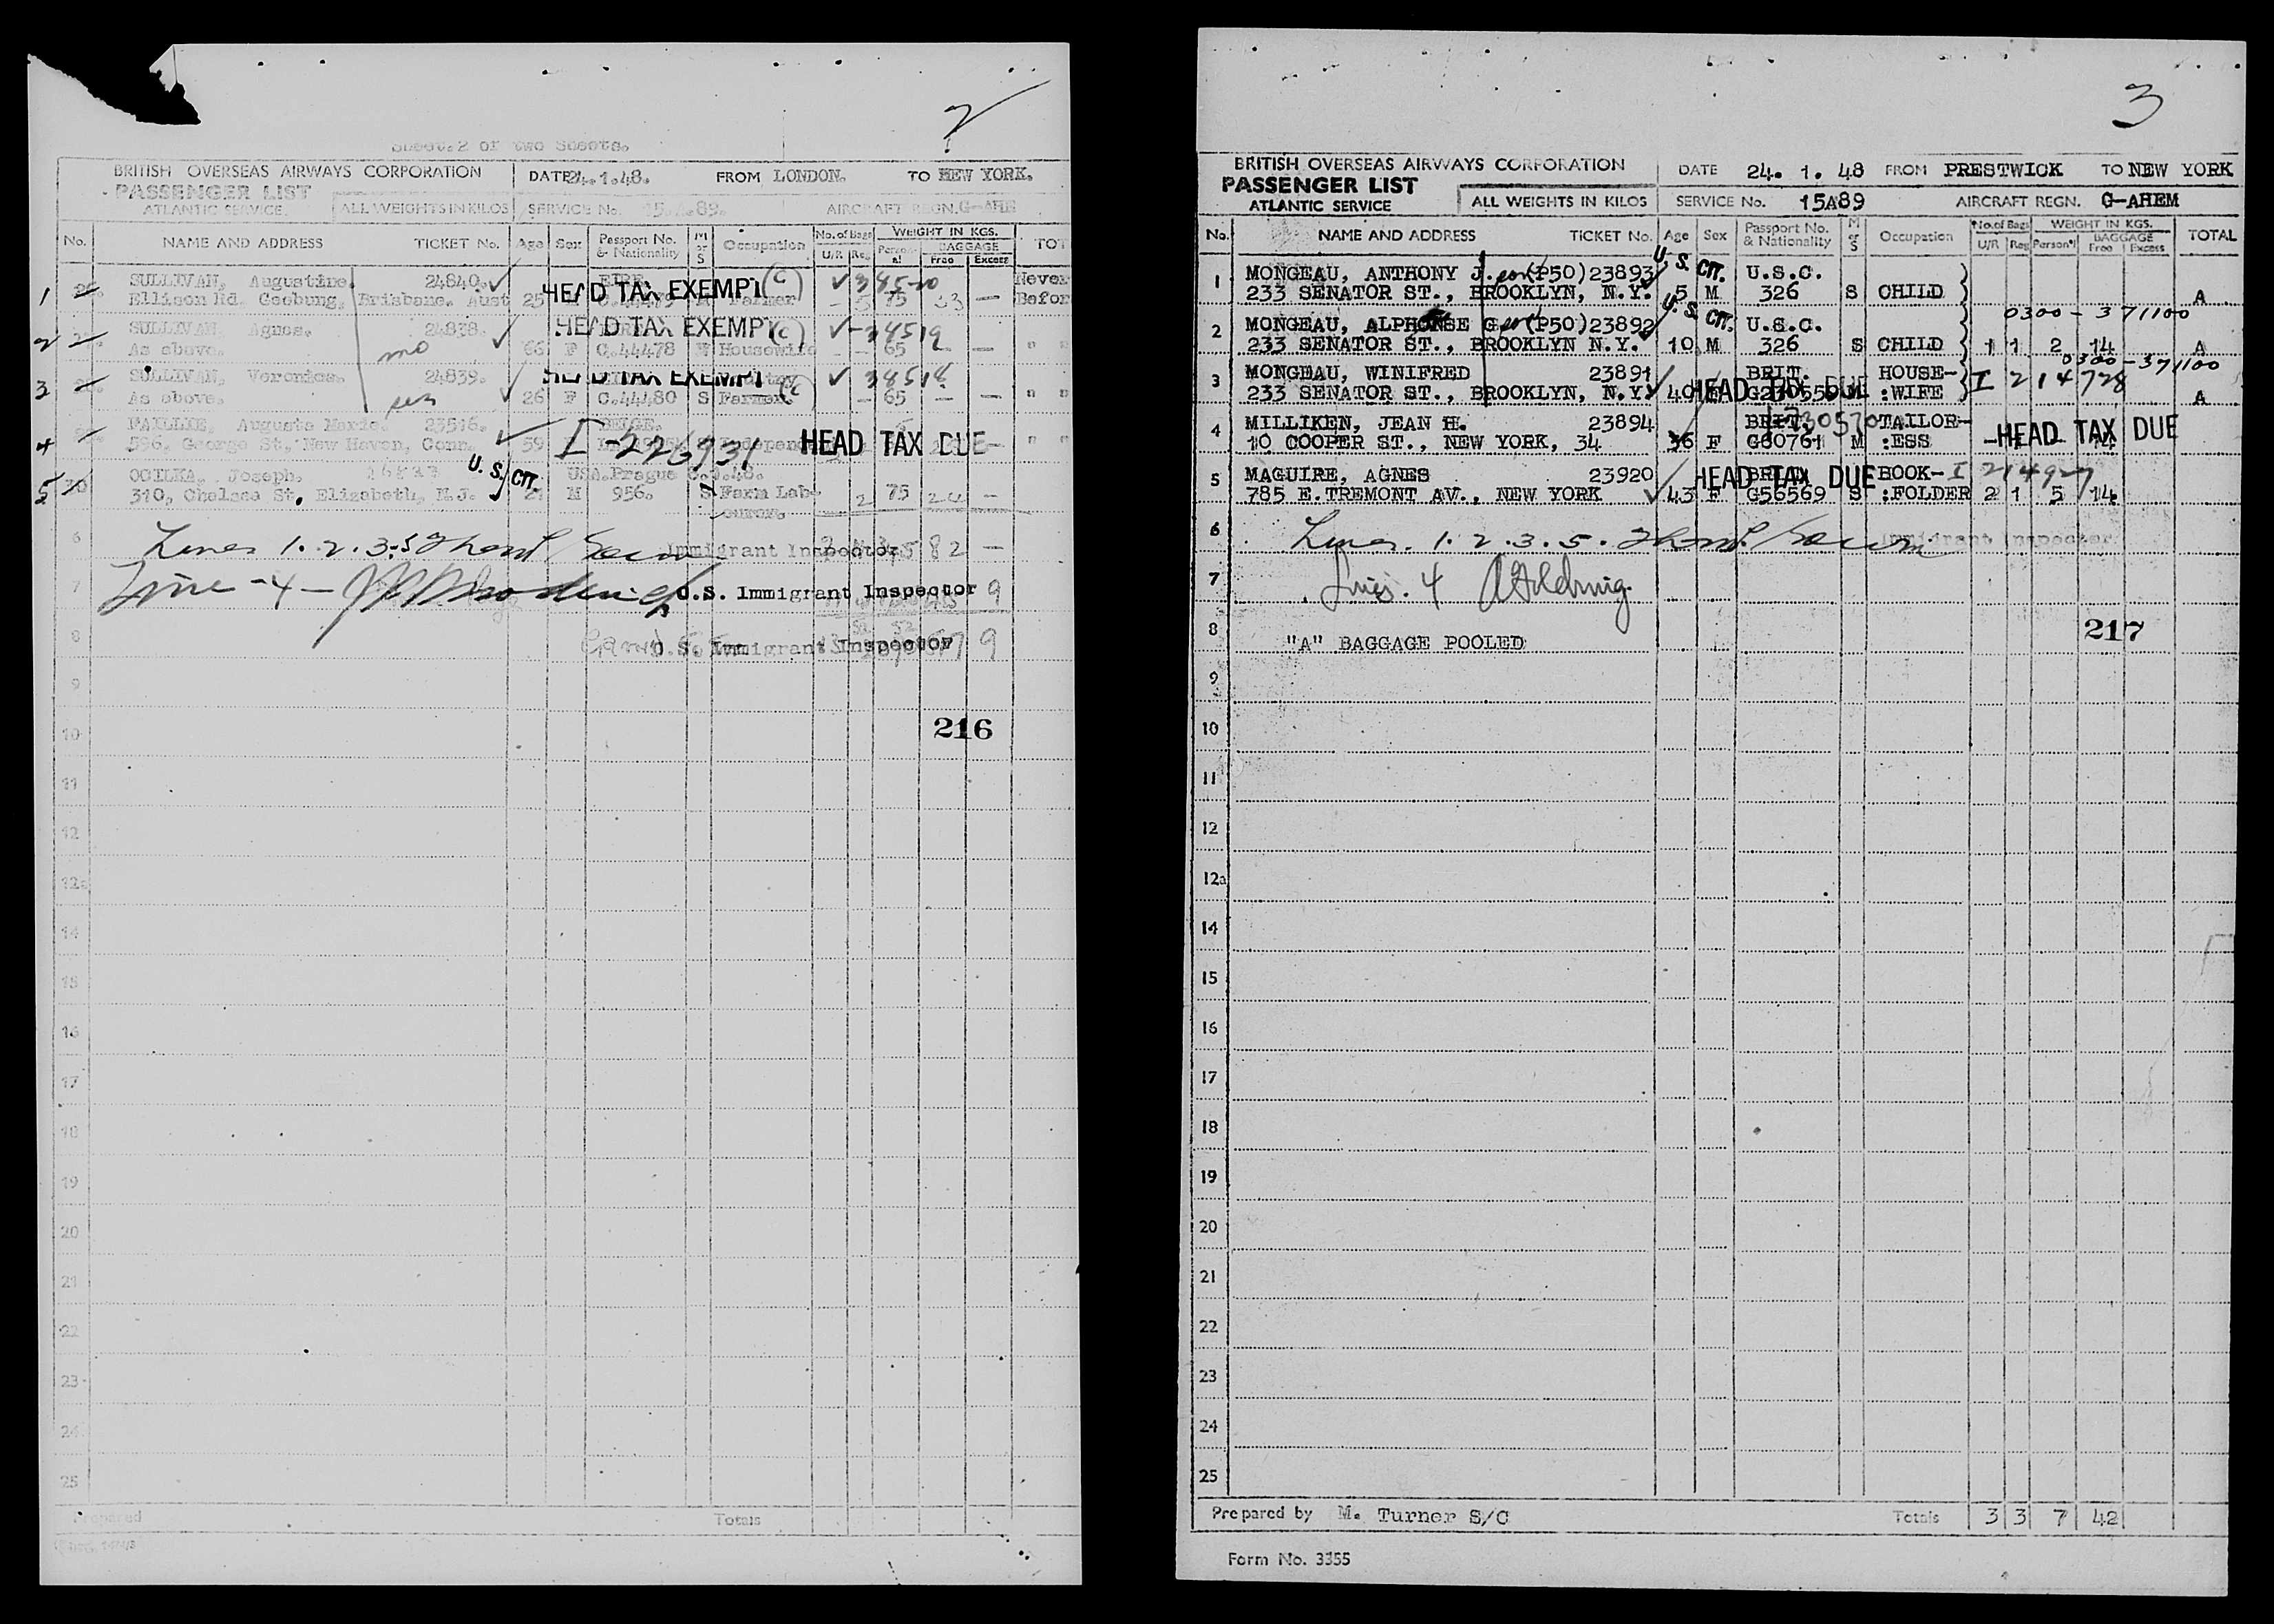 2
Sheet.2 of two Sheets.
BRITISH OVERSEAS AIRWAYS CORPORATION DATE 24.1.48. FROM LONDON. TO NEW YORK.
PASSENGER LIST
ATLANTIC SERVICE. ALL WEIGHTS IN KILOS SERVICE No. 15. .89. AIRCRAFT REGN. G-AHE
No. NAME AND ADDRESS TICKET No. Age Sex Passport No. & Nationality M or S Occupation No. of Bags U/R Reg WEIGHT IN KGS. Person'l BAGGAGE Free Excess TOT
1 SULLIVAN, Augustine. 24840. EIRE HEAD TAX EXEMPT (C) Never
Ellison Rd. Geebung, Brisbane. Aust 25 Farmer 75 33 — Befor
2 SULLIVAN, Agnes. 24838. HEAD TAX EXEMPT (C) 34519
As above. mo 66 F C.44478 W Housewife — — 65 — — " "
3 SULLIVAN, Veronica. 24839. HEAD TAX EXEMPT (C) 34518
As above. sis 26 F C.44480 S — 65 — — " "
4 FAILLIE, Augusta Marie. 23516. BELGE.
596. George St, New Haven, Conn. 59 I-226731 HEAD TAX DUE " "
5 30 OCILKA, Joseph. U.S. CIT. USA.Prague
310, Chelsea St. Elizabeth, N.J. 21 M 956. S Farm Lab- 2 75 24 —
ourer.
6 Lines 1.2.3.5 Immigrant Inspector 82 —
7 Line -4- U.S. Immigrant Inspector 9
8 U.S. Immigrant Inspector 9
9
10 216
11
12
12a
14
15
16
17
18
19
20
21
22
23
24
25
Prepared Totals
3
BRITISH OVERSEAS AIRWAYS CORPORATION DATE 24. 1. 48 FROM PRESTWICK TO NEW YORK
PASSENGER LIST
ATLANTIC SERVICE ALL WEIGHTS IN KILOS SERVICE No. 15A89 AIRCRAFT REGN. G-AHEM
No. NAME AND ADDRESS TICKET No. Age Sex Passport No. & Nationality M or S Occupation No.of Bags U/R Reg WEIGHT IN KGS. Person'l BAGGAGE Free Excess TOTAL
1 MONGEAU, ANTHONY J. son (P50) 23893 U.S. CIT. U.S.C.
233 SENATOR ST., BROOKLYN, N.Y. 5 M 326 S CHILD A
2 MONGEAU, ALPHONSE G. son (P50) 23892 U.S. CIT. U.S.C. 0300-371100
233 SENATOR ST., BROOKLYN N.Y. 10 M 326 S CHILD 1 1 2 14 A
3 MONGEAU, WINIFRED 23891 BRIT. HOUSE- I 214728 0300-371100
233 SENATOR ST., BROOKLYN, N.Y. 40 HEAD TAX DUE :WIFE A
4 MILLIKEN, JEAN H. 23894 BRIT. TAILOR-
10 COOPER ST., NEW YORK, 34 36 F G80761 M :ESS HEAD TAX DUE
5 MAGUIRE, AGNES 23920 HEAD TAX DUE BOOK- I 214927
785 E.TREMONT AV., NEW YORK 43 F G56569 S :FOLDER 2 1 5 14
6 Lines. 1.2.3.5. Immigrant Inspector
7 Lines. 4
8 "A" BAGGAGE POOLED 217
9
10
11
12
12a
14
15
16
17
18
19
20
21
22
23
24
25
Prepared by M. Turner S/C Totals 3 3 7 42
Form No. 3355